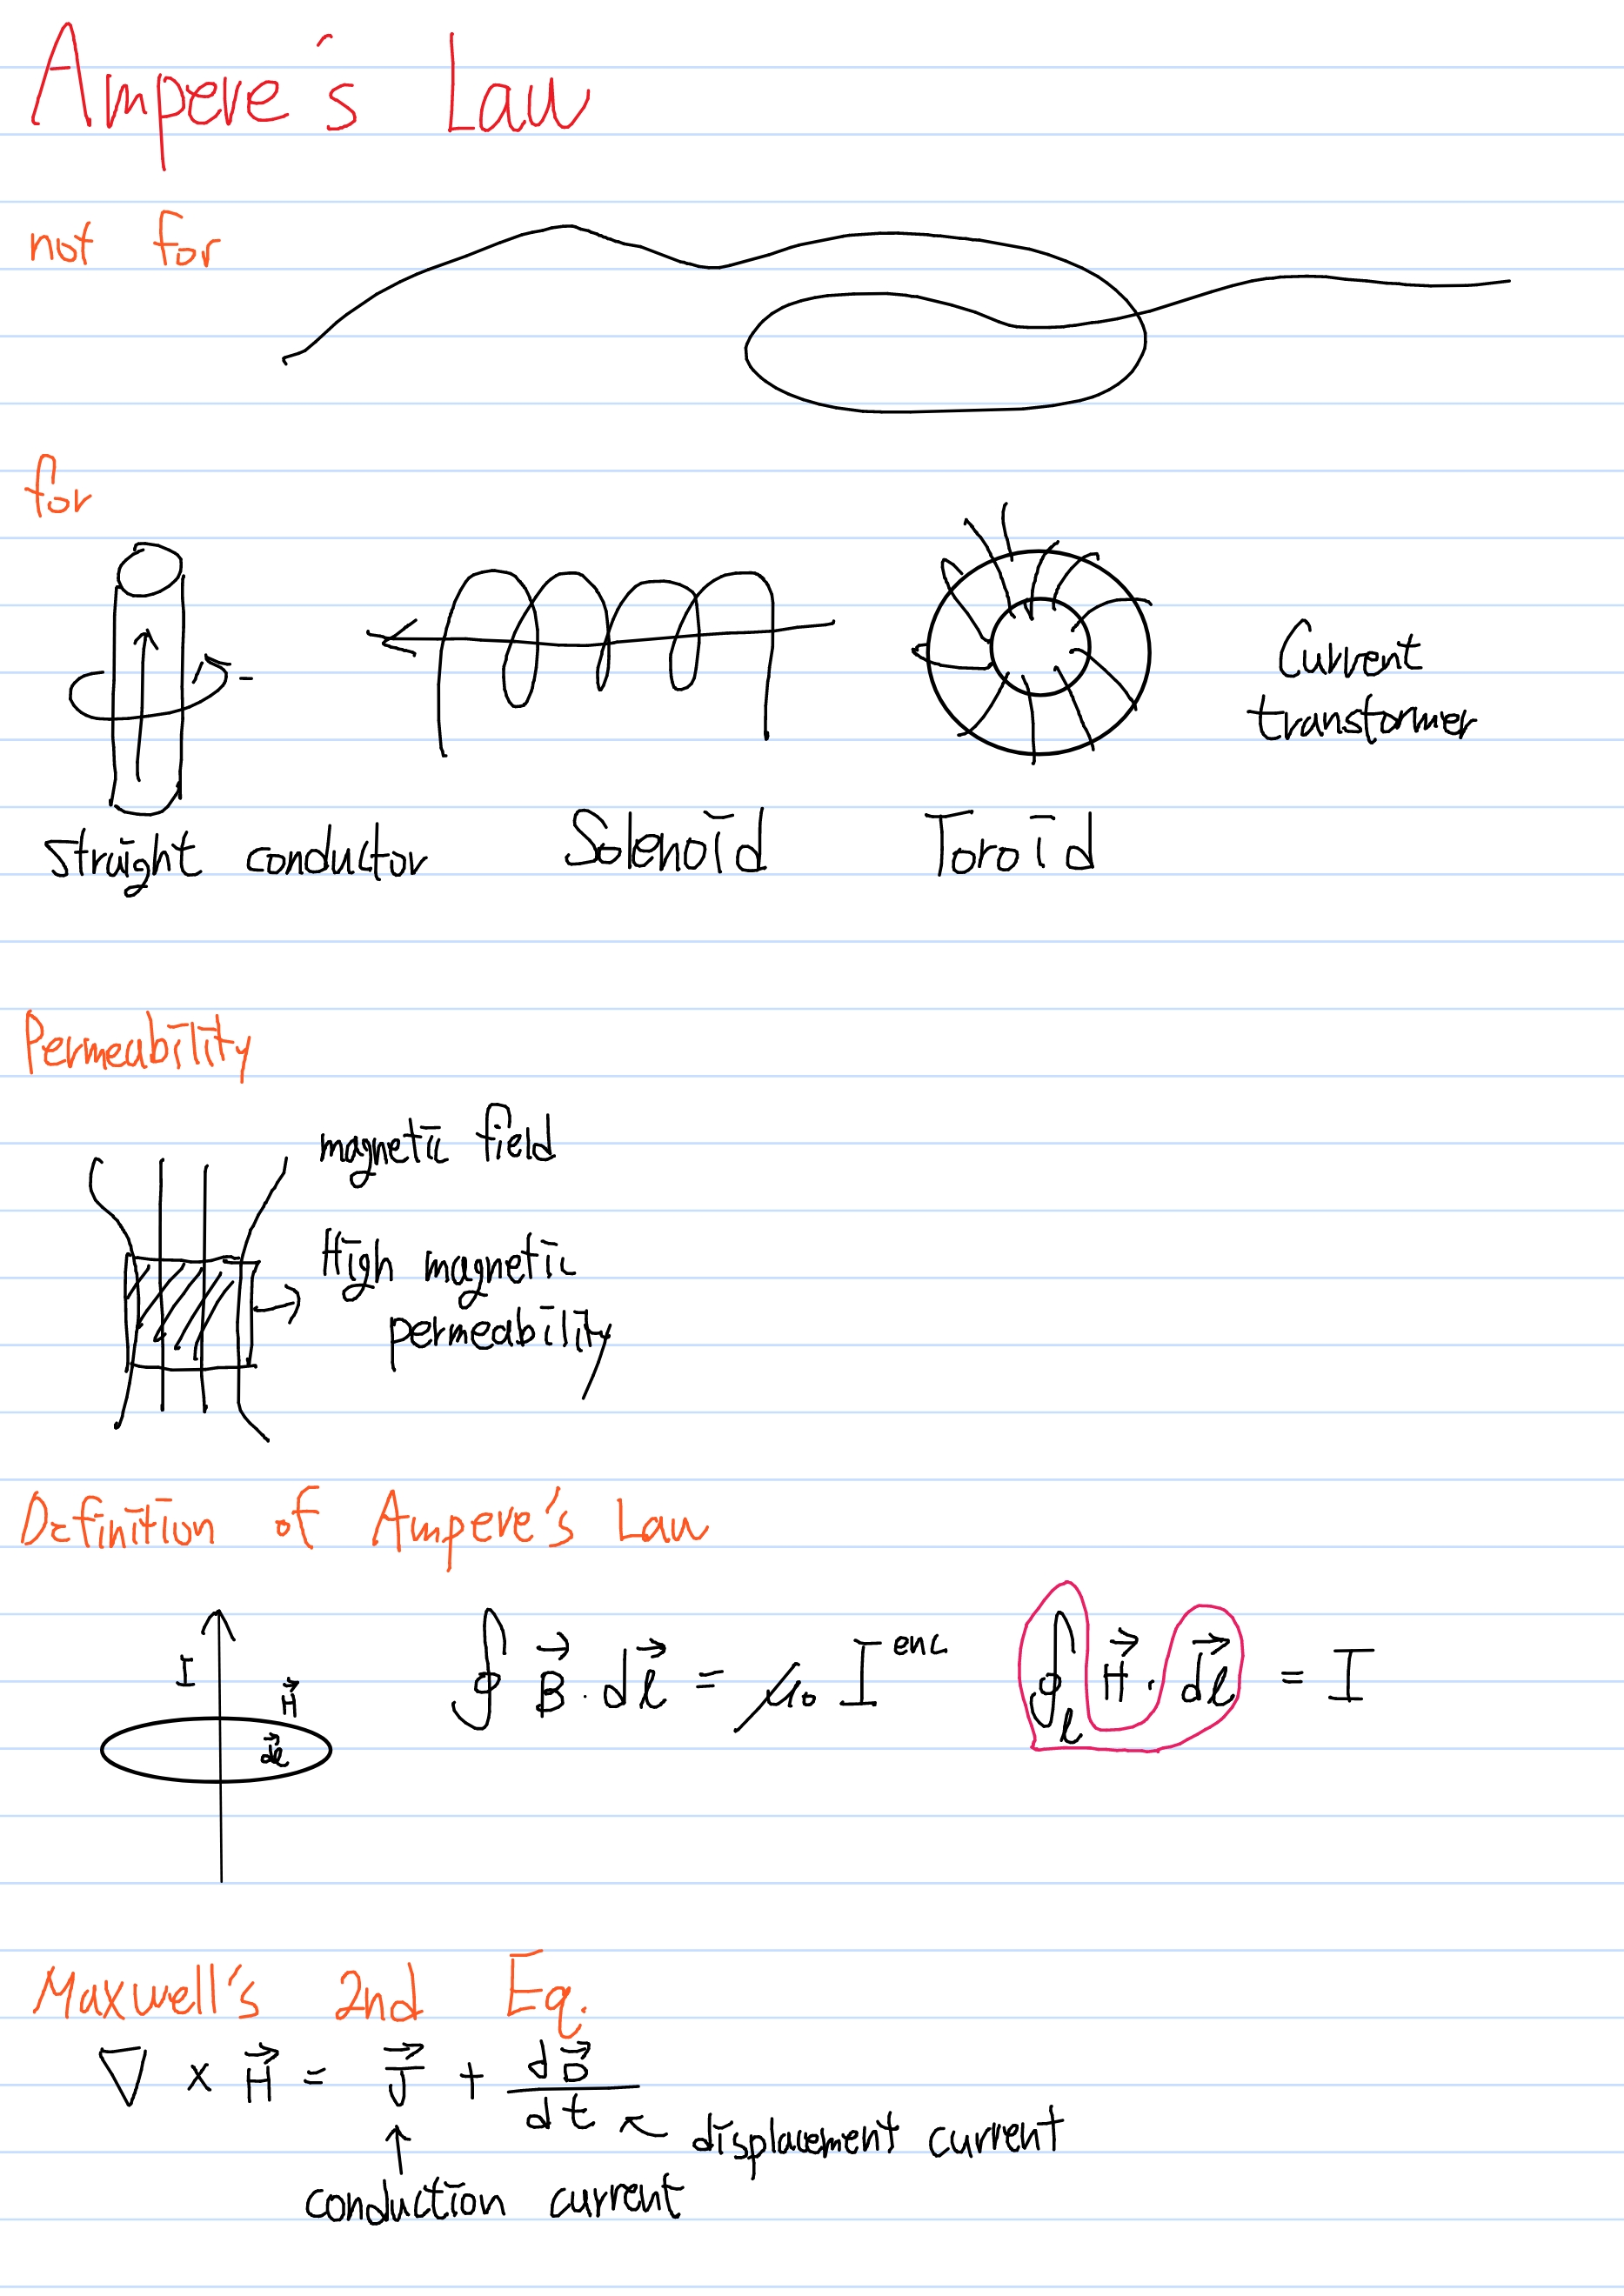 Ampere's Law
not for
for
Current
transformer
straight conductor
Solenoid
Toroid
Permeability
magnetic field
High magnetic
permeability
Definition of Ampere's Law
I
H⃗
dl⃗
∮ B⃗ · dl⃗ = μ₀ I^enc
∮_l H⃗ · dl⃗ = I
Maxwell's 2nd Eq.
∇ × H⃗ = J⃗ + dD⃗/dt
displacement current
conduction current